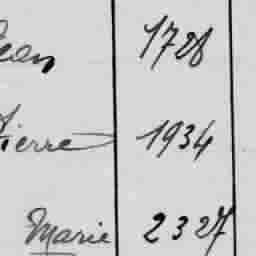 Jean 1728
Pierre 1934
Marie 2327